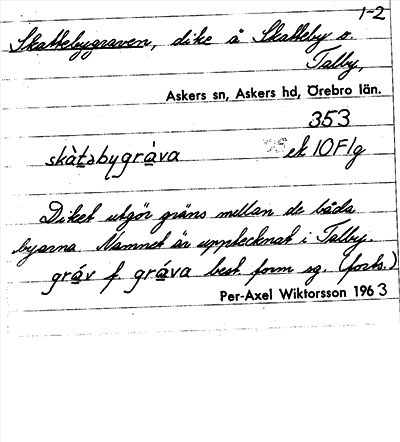 1-2
Skattebygraven, dike å Skatteby o.
Talby,
Askers sn, Askers hd, Örebro län.
353
skàt̲abygrá̲va ek 10F1g
Diket utgör gräns mellan de båda
byarna. Namnet är upptecknat i Talby.
grá̲v f. grá̲va best. form sg. (forts.)
Per-Axel Wiktorsson 1963